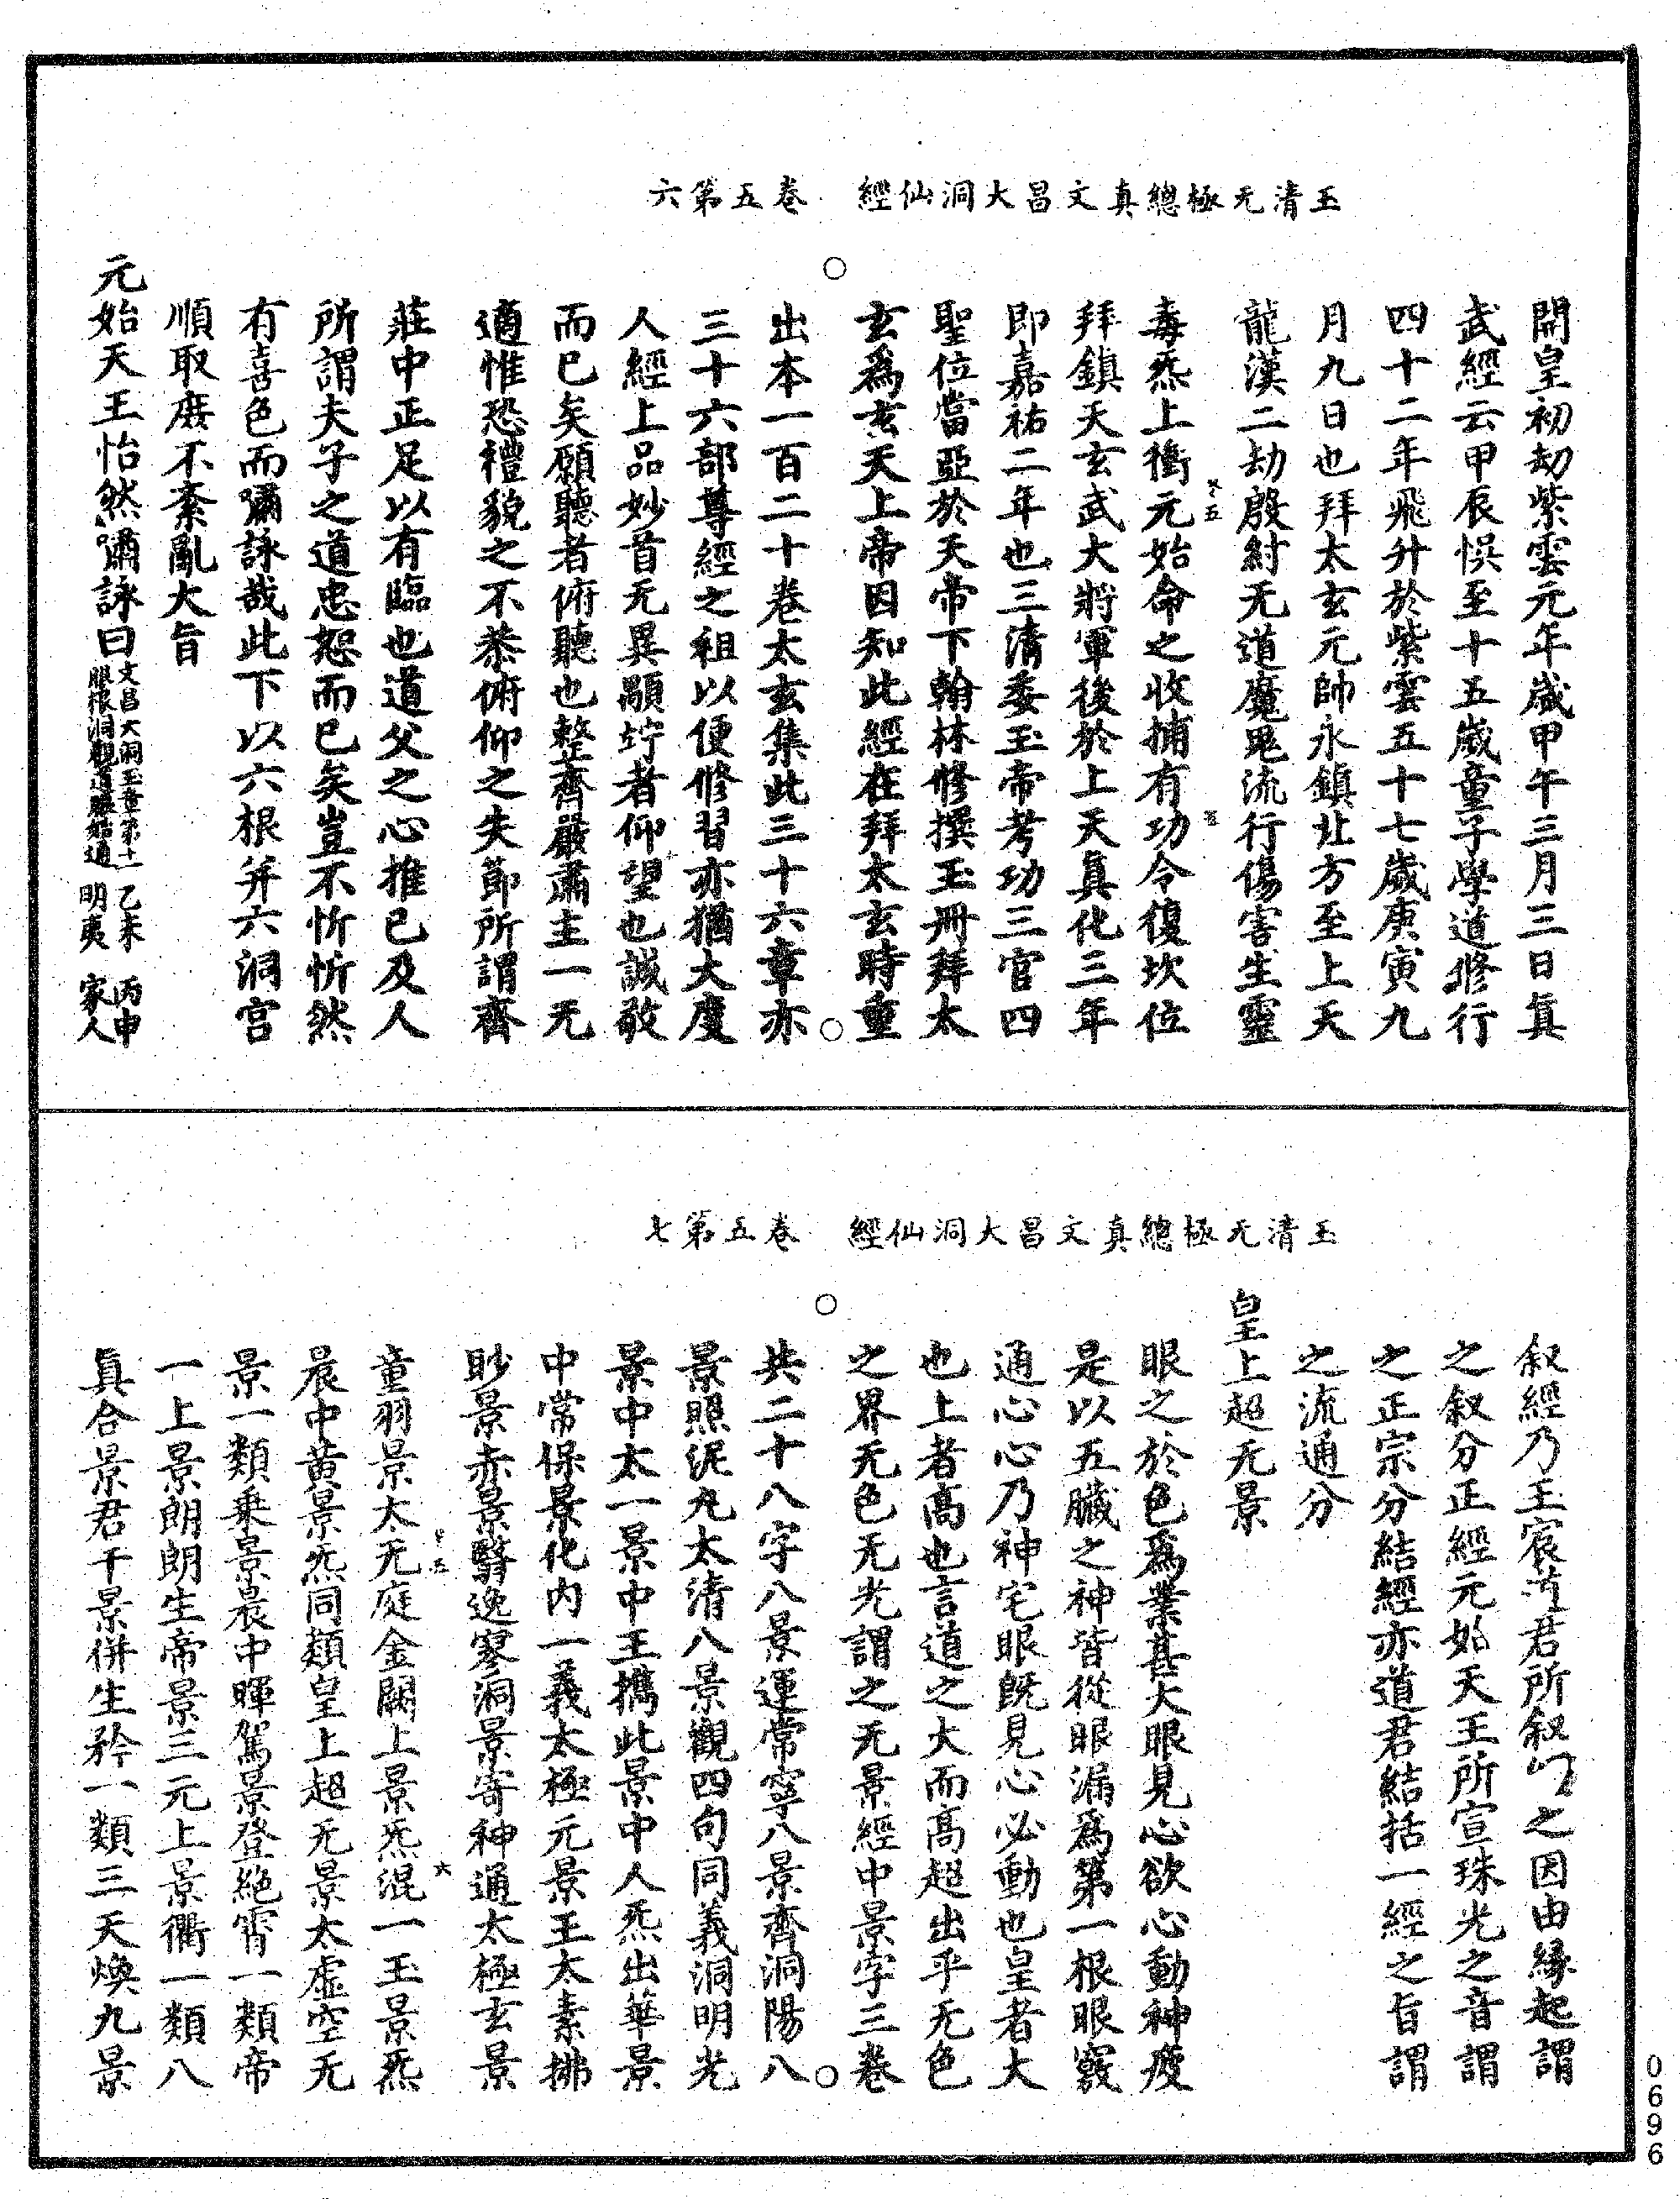 玉清无極總真文昌大洞仙經　卷五第六
開皇初劫紫雲元年歲甲午三月三日真
武經云甲辰悞至十五歲童子學道修行
四十二年飛升於紫雲五十七歲庚寅九
月九日也拜太玄元帥永鎮北方至上天
龍漢二劫殷紂无道魔鬼流行傷害生靈
毒炁上衝元始命之收捕有功令復坎位
拜鎮天玄武大將軍後於上天真化三年
即嘉祐二年也三清委玉帝考功三官四
聖位當亞於天帝下翰林修撰玉冊拜太
玄為玄天上帝因知此經在拜太玄時重
出本一百二十卷太玄集此三十六章亦
三十六部尊經之祖以便修習亦猶大度
人經上品妙首无異顒竚者仰望也誠敬
而已矣願聽者俯聽也整齊嚴肅主一无
適惟恐禮貌之不恭俯仰之失節所謂齊
莊中正足以有臨也道父之心推已及人
所謂夫子之道忠恕而已矣豈不忻忻然
有喜色而嘯詠哉此下以六根并六洞宫
順取庶不紊亂大旨
元始天王怡然嘯詠曰文昌大洞玉章第十一 乙未 丙申
眼根洞觀道眼始通 明夷 家人
玉清无極總真文昌大洞仙經　卷五第七
叙經乃玉宸道君所叙以之因由緣起謂
之叙分正經元始天王所宣珠光之音謂
之正宗分結經亦道君結括一經之旨謂
之流通分
皇上超无景
眼之於色為業甚大眼見心欲心動神疲
是以五臟之神皆從眼漏為第一根眼竅
通心心乃神宅眼既見心必動也皇者大
也上者高也言道之大而高超出乎无色
之界无色无光謂之无景經中景字三卷
共二十八字八景運常寧八景齊洞陽八
景照泥丸太清八景觀四句同義洞明光
景中太一景中王攜此景中人炁出華景
中常保景化内一義太極元景王太素拂
眇景赤景翳逸寥洞景寄神通太極玄景
童羽景太无庭金闕上景炁混一玉景炁
晨中黄景炁同類皇上超无景太虛空无
景一類乗景晨中暉駕景登絶霄一類帝
一上景朗朗生帝景三元上景衢一類八
真合景君千景併生矜一類三天煥九景
0696